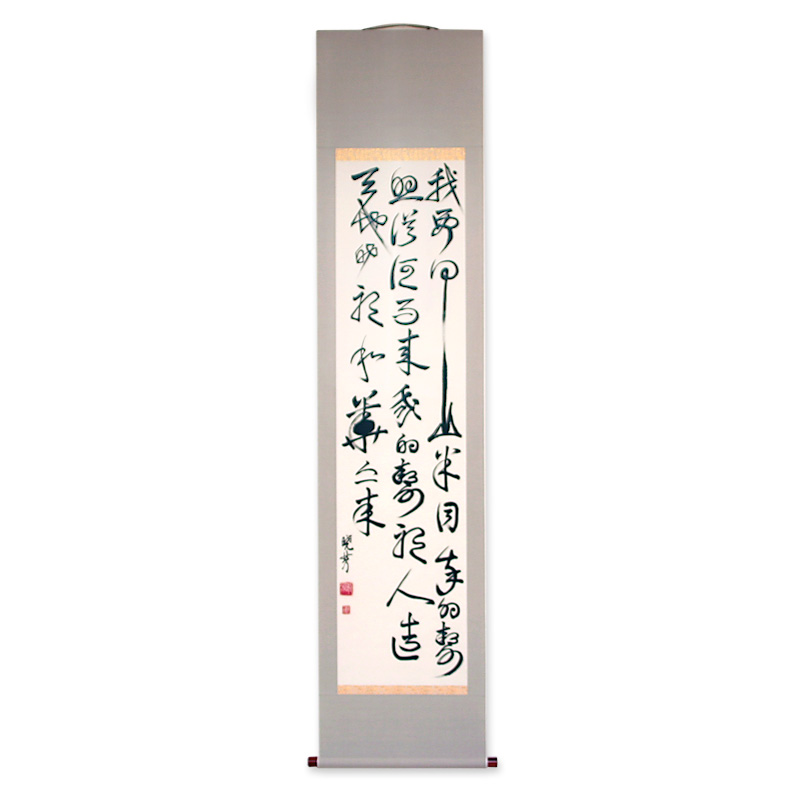 我要向山舉目我的幫
助從何而來我的幫助從造
天地的耶和華而來
曉芳